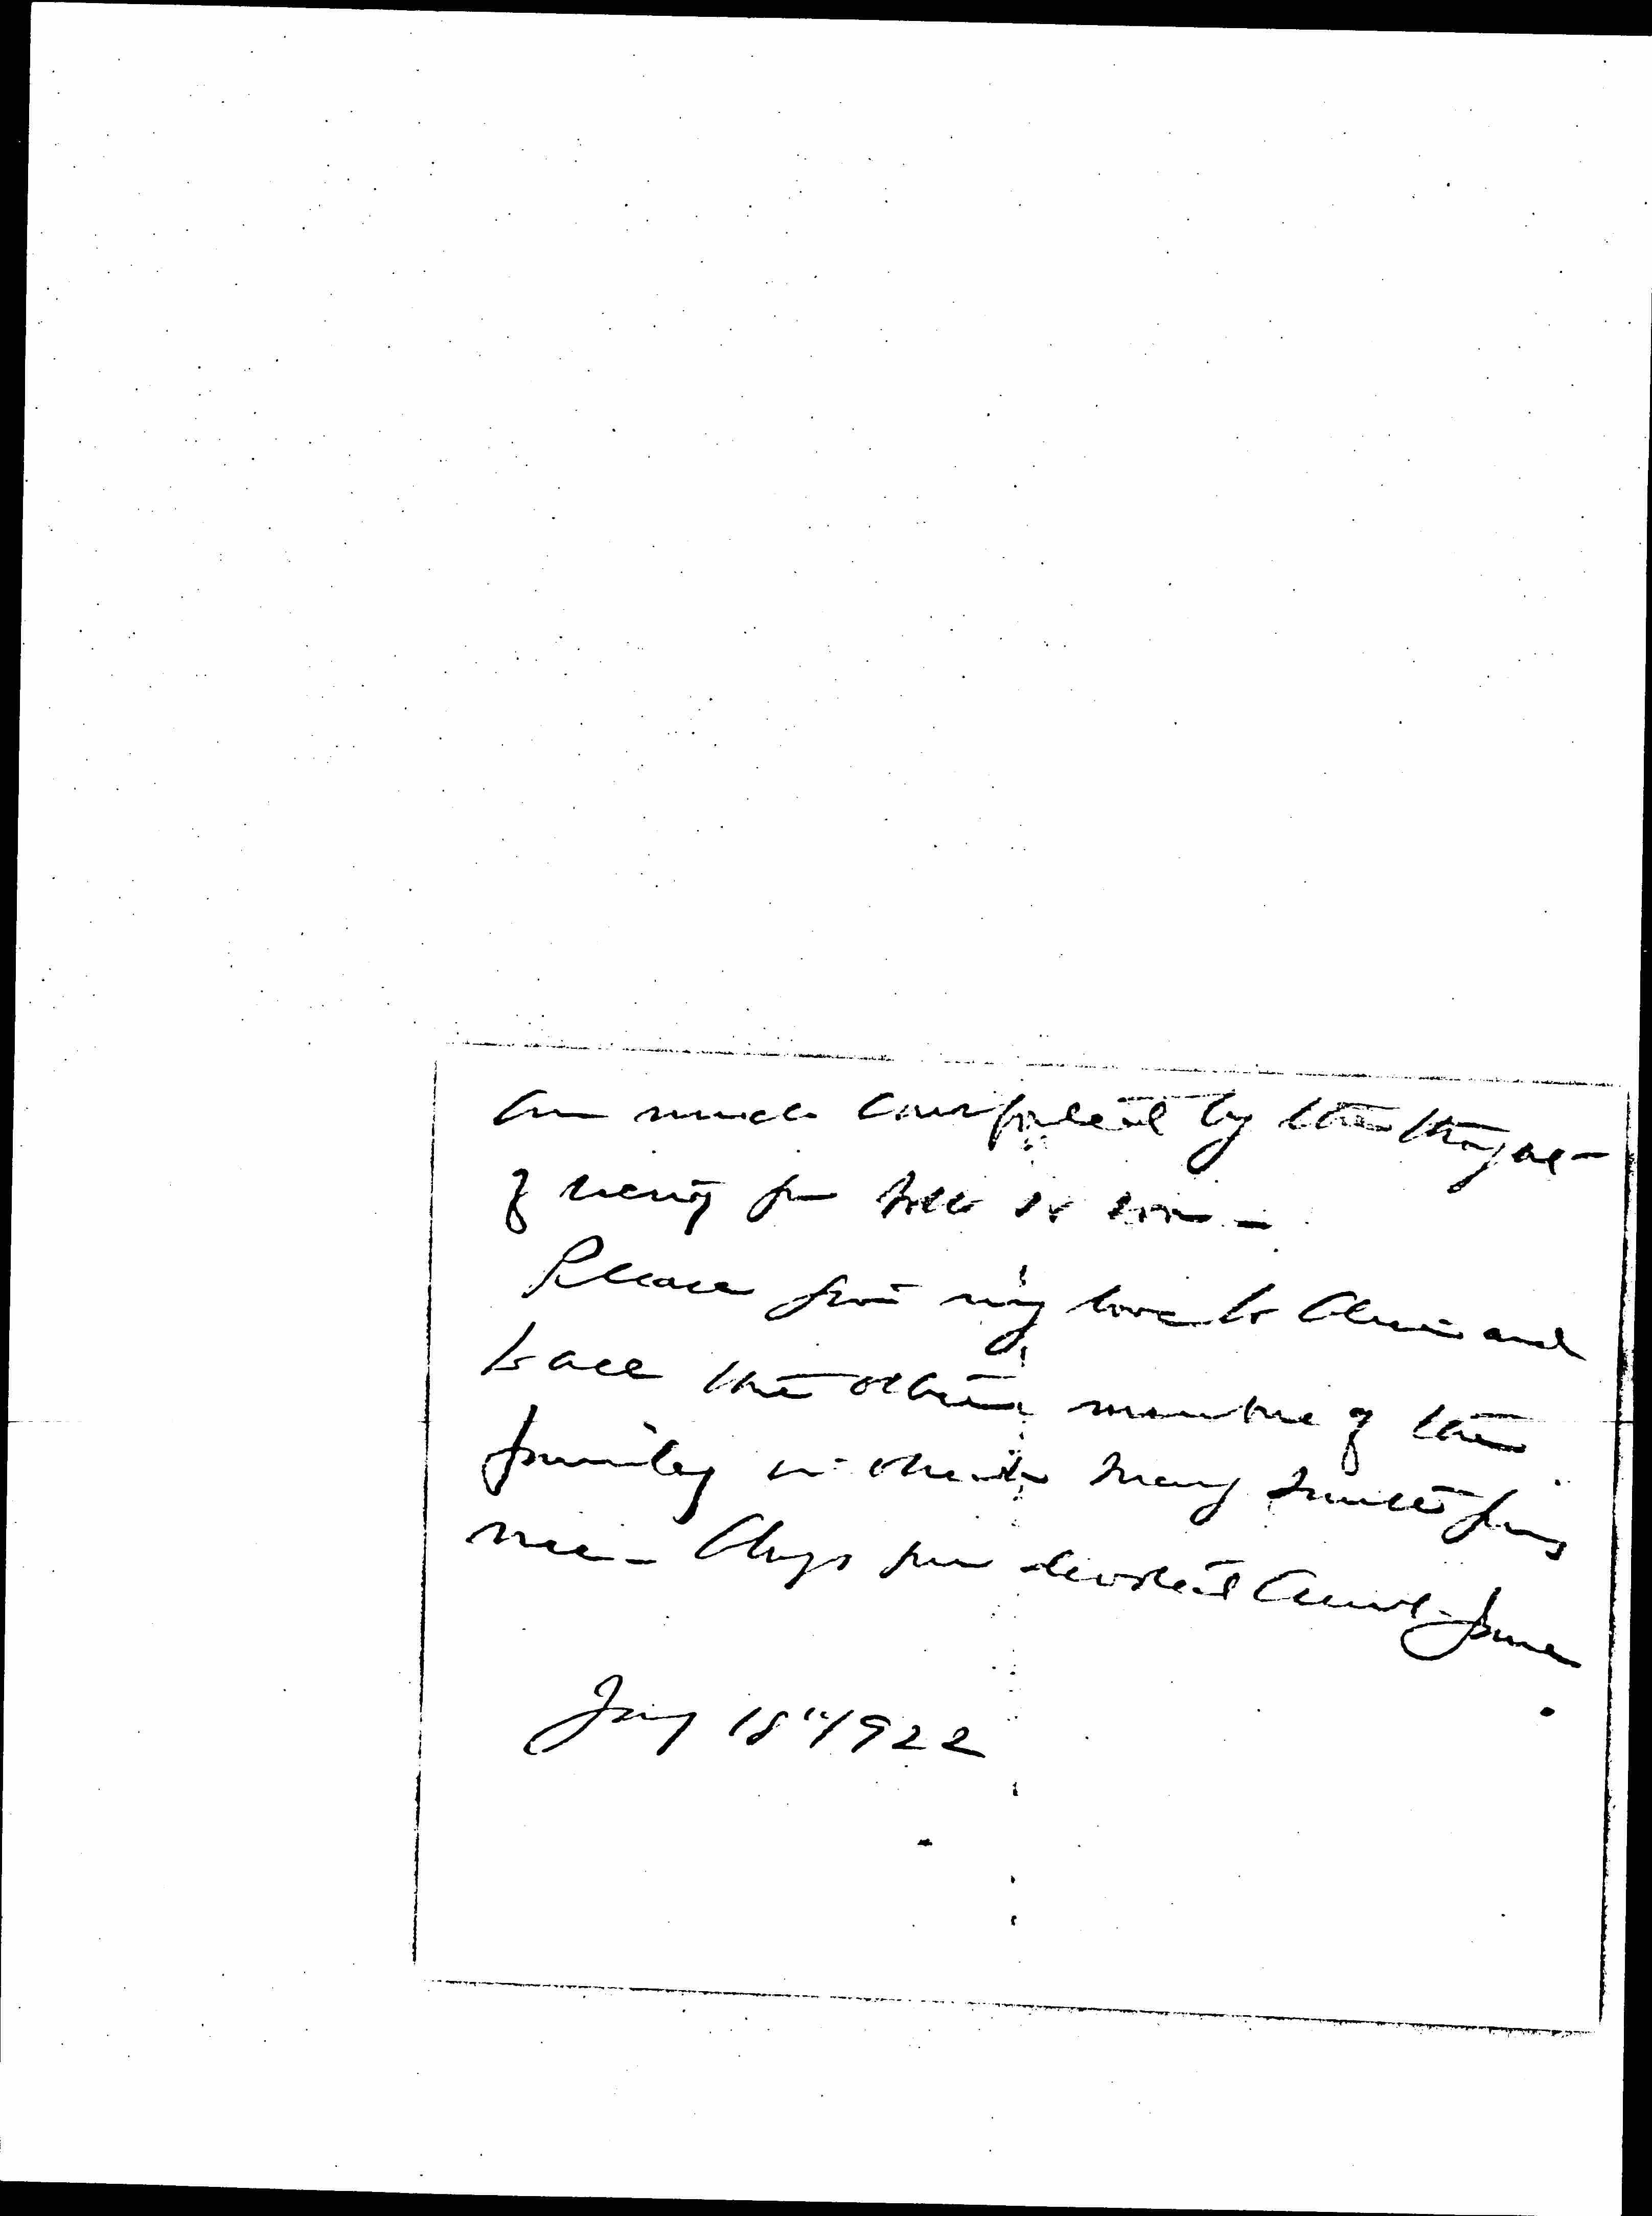 am much comforted by the thought
of seeing you both so soon -
Please give my love to and
to all the other members of the
family in which Mary Smith joins
me - Always your devoted Aunt Jane
Jany 18th 1922